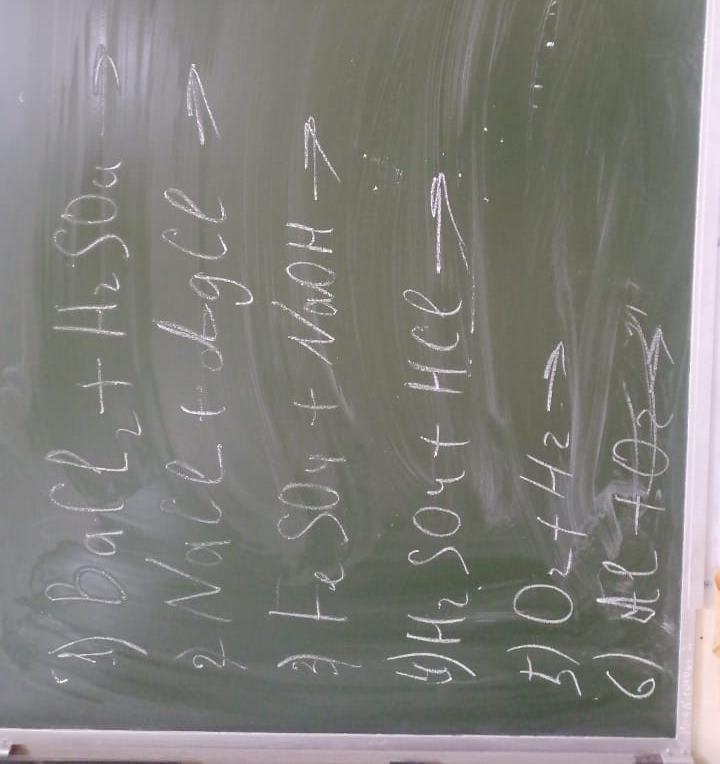 1) BaCl₂ + H₂SO₄ →
2) NaCl + AgCl →
3) FeSO₄ + NaOH →
4) H₂SO₄ + HCl →
5) O₂ + H₂ →
6) Al + O₂ →